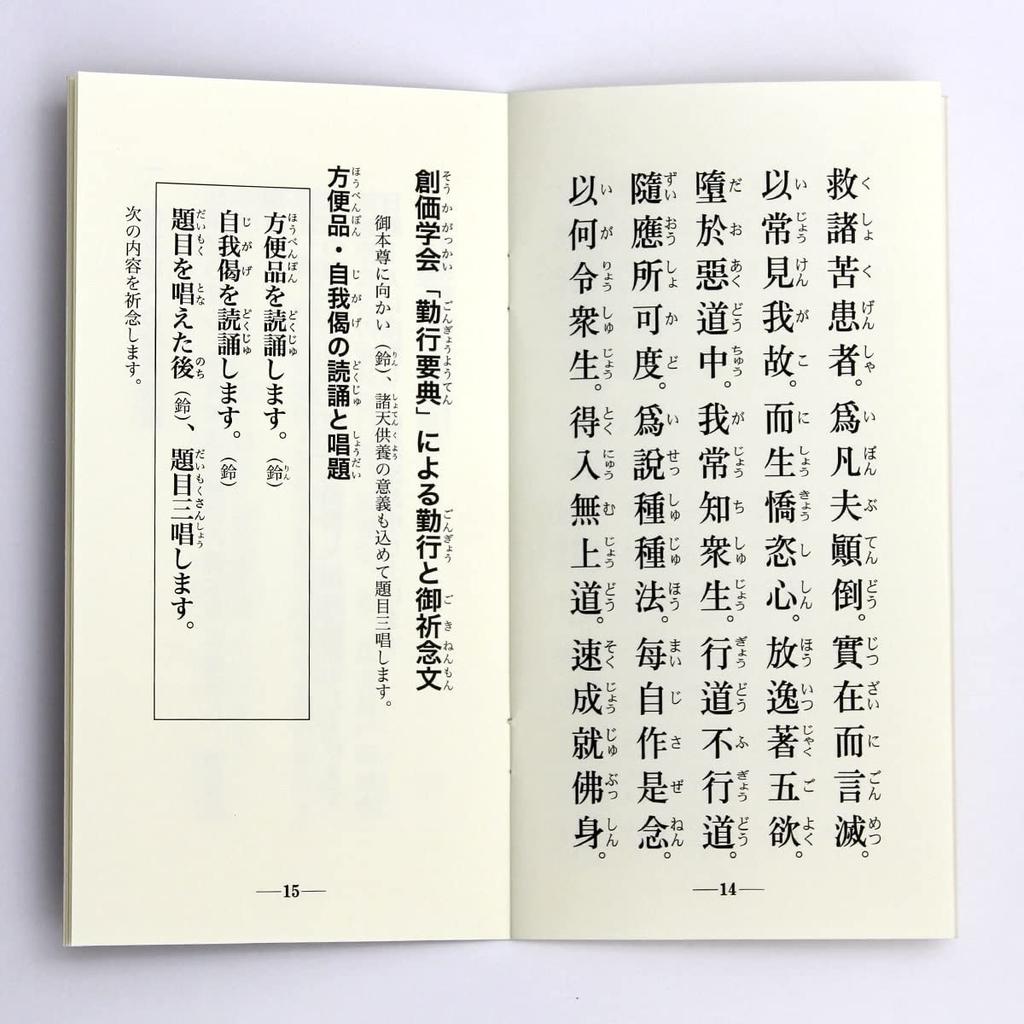 救諸苦患者。爲凡夫顚倒。實在而言滅。
以常見我故。而生憍恣心。放逸著五欲。
墮於惡道中。我常知衆生。行道不行道。
隨應所可度。爲說種種法。每自作是念。
以何令衆生。得入無上道。速成就佛身。
—14—
創価学会「勤行要典」による勤行と御祈念文
御本尊に向かい（鈴）、諸天供養の意義も込めて題目三唱します。
方便品・自我偈の読誦と唱題
方便品を読誦します。（鈴）
自我偈を読誦します。（鈴）
題目を唱えた後（鈴）、題目三唱します。
次の内容を祈念します。
—15—